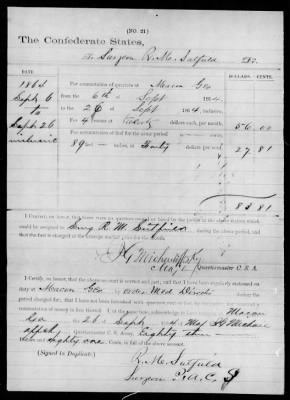 (NO. 21)
The Confederate States,
To Surgeon R. M. Sutfield Dr.
DATE. DOLLARS. CENTS.
1864 For commutation of quarters at Macon Geo
Sept 6 from the 6th of Sept 1864
to to the 26 of Sept 1864, inclusive,
Sept. 26 For 4 rooms at dollars each, per month, 56 00
inclusive For commutation of fuel for the same period
89 feet inches, at Twenty dollars per cord, 27 81
83 81
I CERTIFY, on honor, that there were no quarters owned or hired by the public at the above station which
could be assigned to Surg R M Sutfield during the above period, and
that the fuel is charged at the average market price for the month.
Quartermaster C. S. A.
I CERTIFY, on honor, that the above account is correct and just; and that I have been regularly stationed on
duty at Macon Geo by order Med Direct during the
period charged for; that I have not been furnished with quarters, rent or fuel, by the public, nor received a
commutation of money in lieu thereof. I at the same time, acknowledge to have received at Macon
Geo 26 Sept 4 Maj
Quartermaster C. S. Army, Eighty three
dollars and Eighty one Cents, in full of the above account.
(Signed in Duplicate)
R. M. Sutfield
Surgeon P. A. C. S